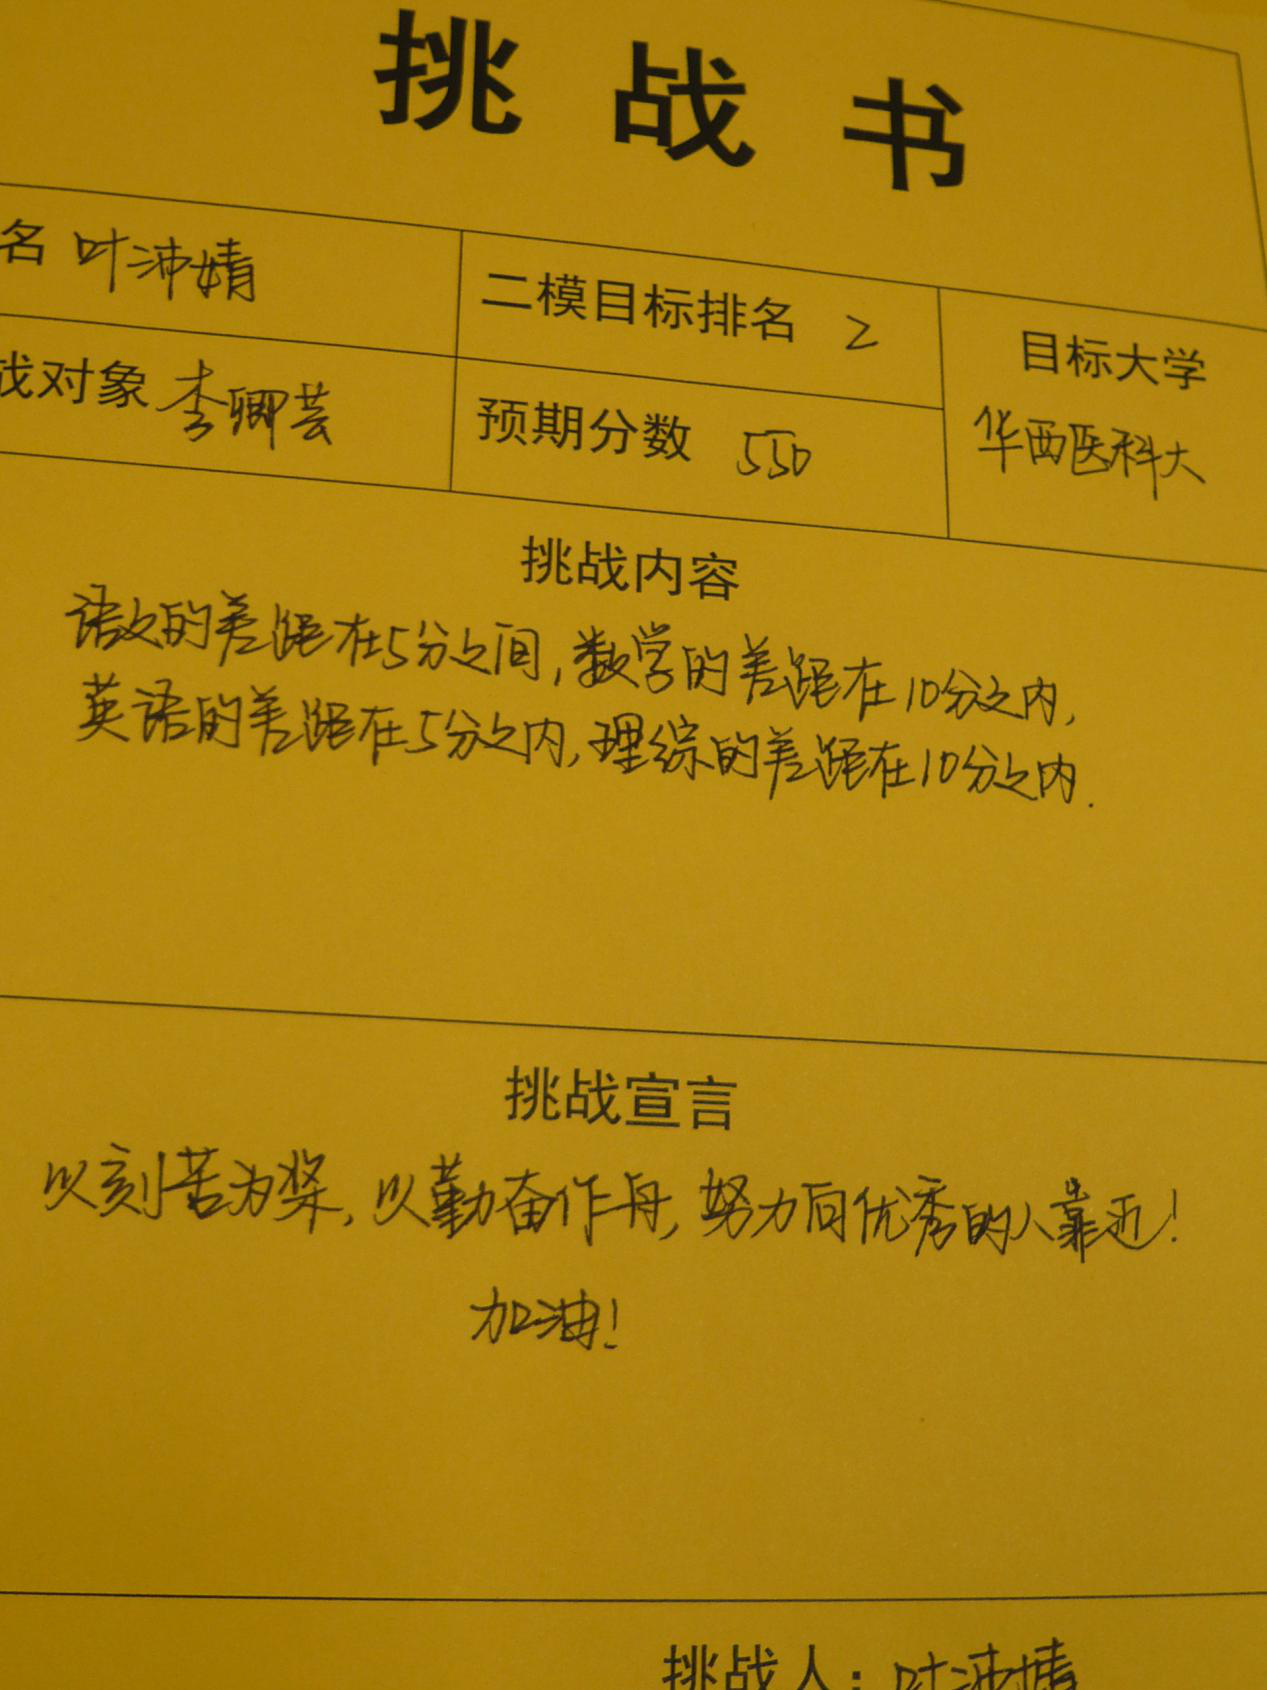 挑战书
名 叶沛婧
二模目标排名 2
目标大学
战对象 李卿芸
预期分数 550
华西医科大
挑战内容
语文的差距在5分之间,数学的差距在10分之内,
英语的差距在5分之内,理综的差距在10分之内.
挑战宣言
以刻苦为桨,以勤奋作舟,努力向优秀的人靠近!
加油!
挑战人:叶沛婧